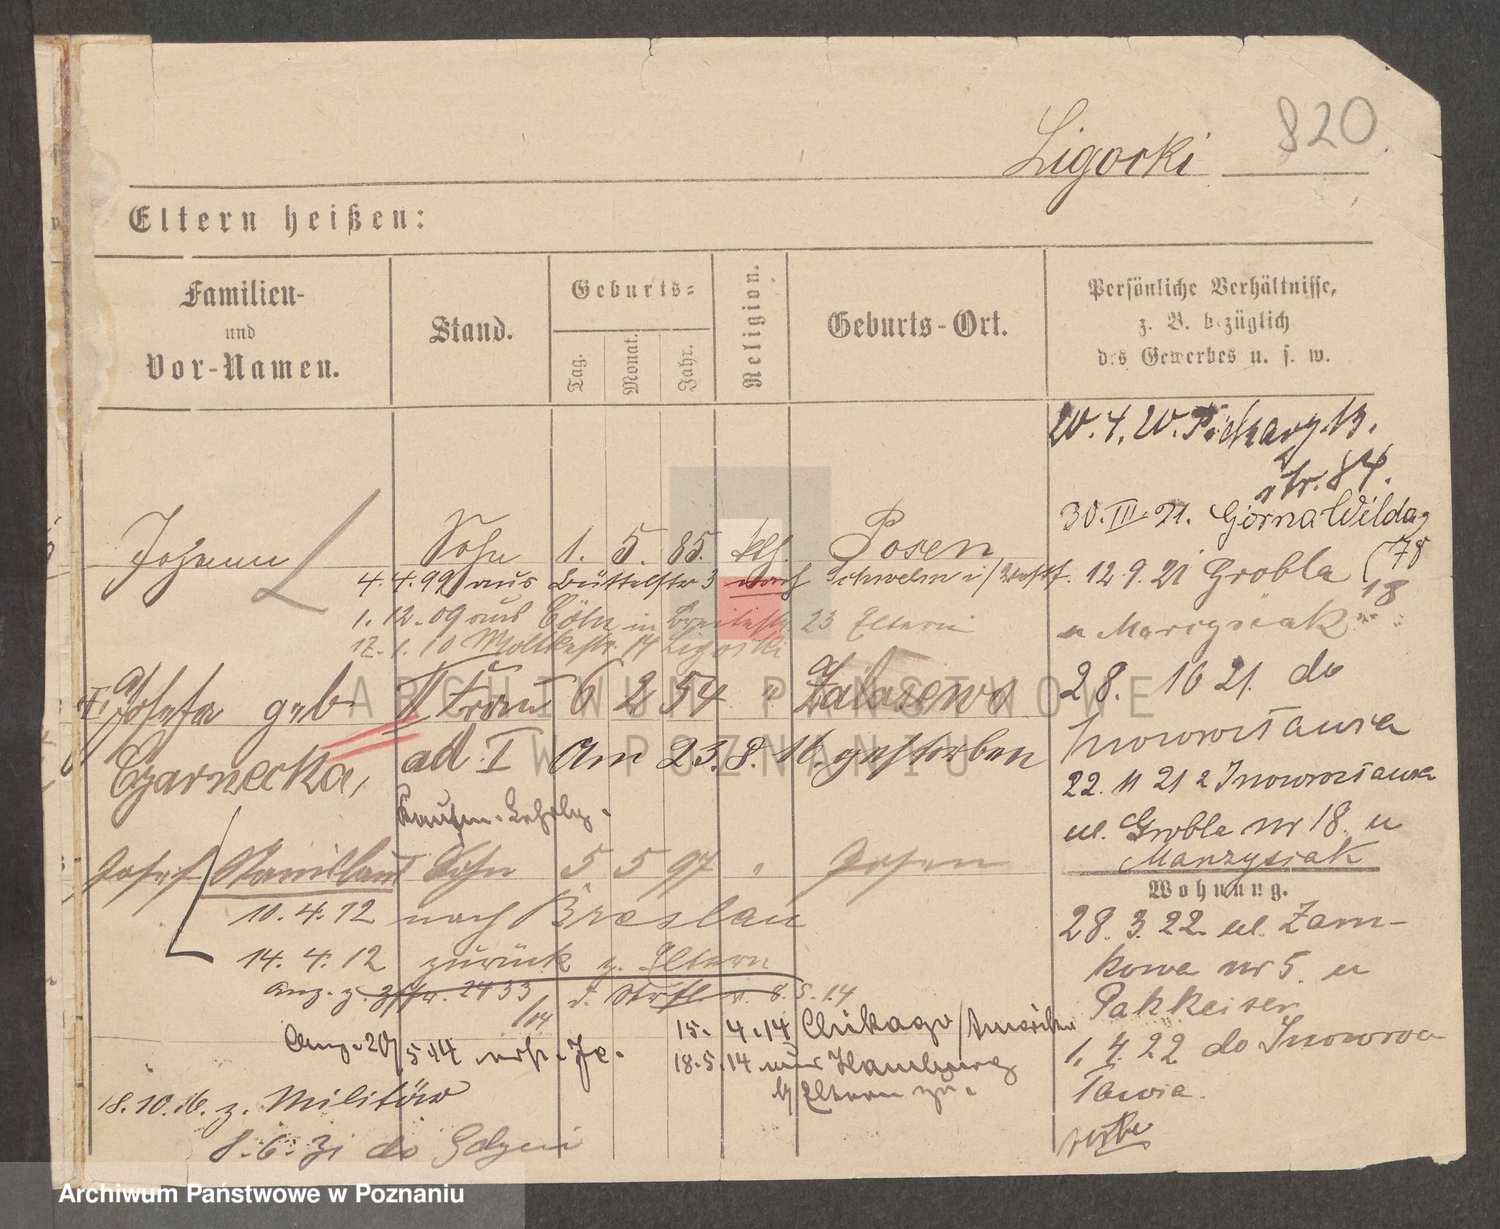 820
Ligocki
Eltern heißen:
Familien-
und
Vor-Namen.
Stand.
Geburts-
Tag.
Monat.
Jahr.
Religion.
Geburts-Ort.
Persönliche Verhältnisse,
z. B. bezüglich
des Gewerbes u. s. w.
20. 4. 20.
str. 84.
Johann Sohn 1. 5. 85. kth. Posen
4. 4. 99 aus Büttelstr 3 nach Schwelm i/Westf.
1. 12. 09 aus Cöln in Breitestr. 23 Eltern
12. 1. 10 Moltkestr. Ligocki
30. III. 21. Górna Wilda
78
12 9. 21 Grobla 18
u Marzysiak
II. Josefa geb. II Frau 6 2 54 " Zalasewo
Czarnecka, ad. I am 23. 8. 16. gestorben
28. 10 21. do
Inowrocławia
22. 11 21 z Inowrocławia
ul. Grobla nr 18. u
Marzysiak
Kaufm. Lehrlg.
Josef Stanislaus Sohn 5 5 97 " Posen
10. 4. 12 nach Breslau
14. 4. 12 zurück z. Eltern
8. 5. 14
15. 4. 14 Chikago/Amerika
18. 5. 14 aus Hamburg
z/ Eltern zu.
18. 10. 16. z. Militär
8. 6. 31 do Gdyni
Wohnung.
28. 3. 22 ul. Zam-
kowa nr 5 u
1. 4. 22 do Inowroc-
ławia.
ARCHIWUM PAŃSTWOWE
W POZNANIU
Archiwum Państwowe w Poznaniu